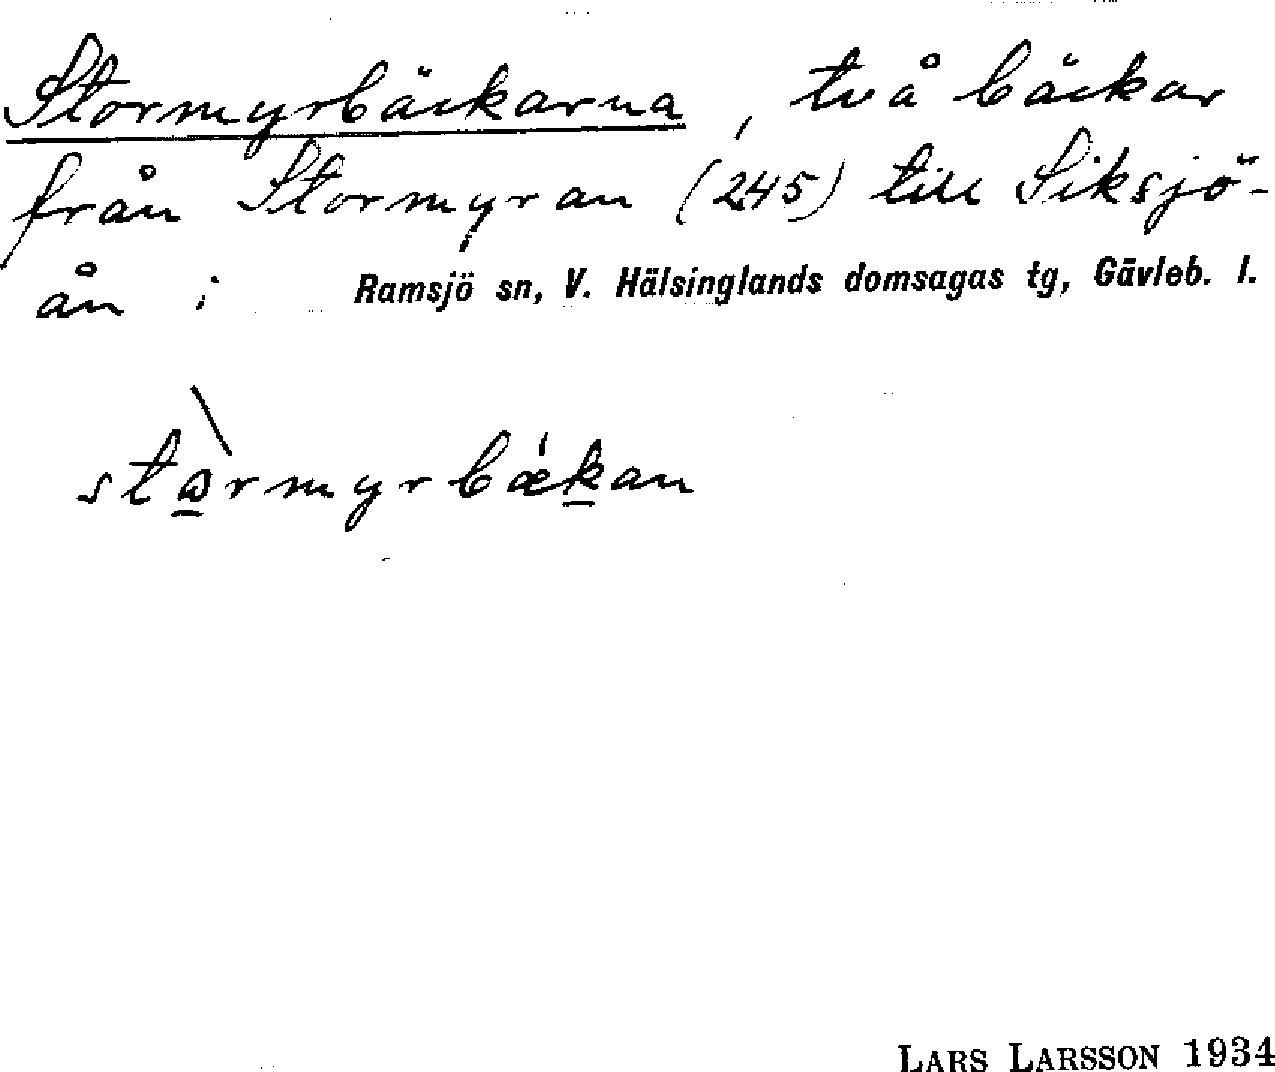 Stormyrbäckarna, två bäckar
från Stormyran (245) till Siksjö-
ån i Ramsjö sn, V. Hälsinglands domsagas tg, Gävleb. l.
stɷ̲̀rmyrbǽk̲an
LARS LARSSON 1934